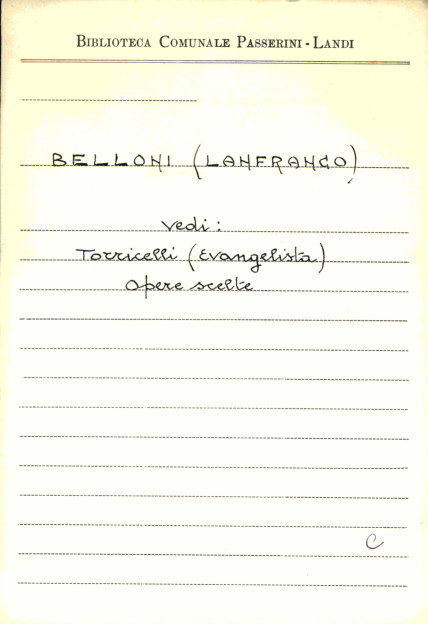 BIBLIOTECA COMUNALE PASSERINI - LANDI
BELLONI (LANFRANCO)
vedi:
Torricelli (Evangelista)
Opere scelte
C